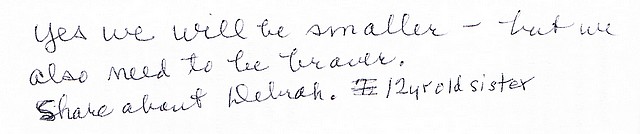 Yes we will be smaller - but we
also need to be braver.
Share about Debrah. 12yr old sister